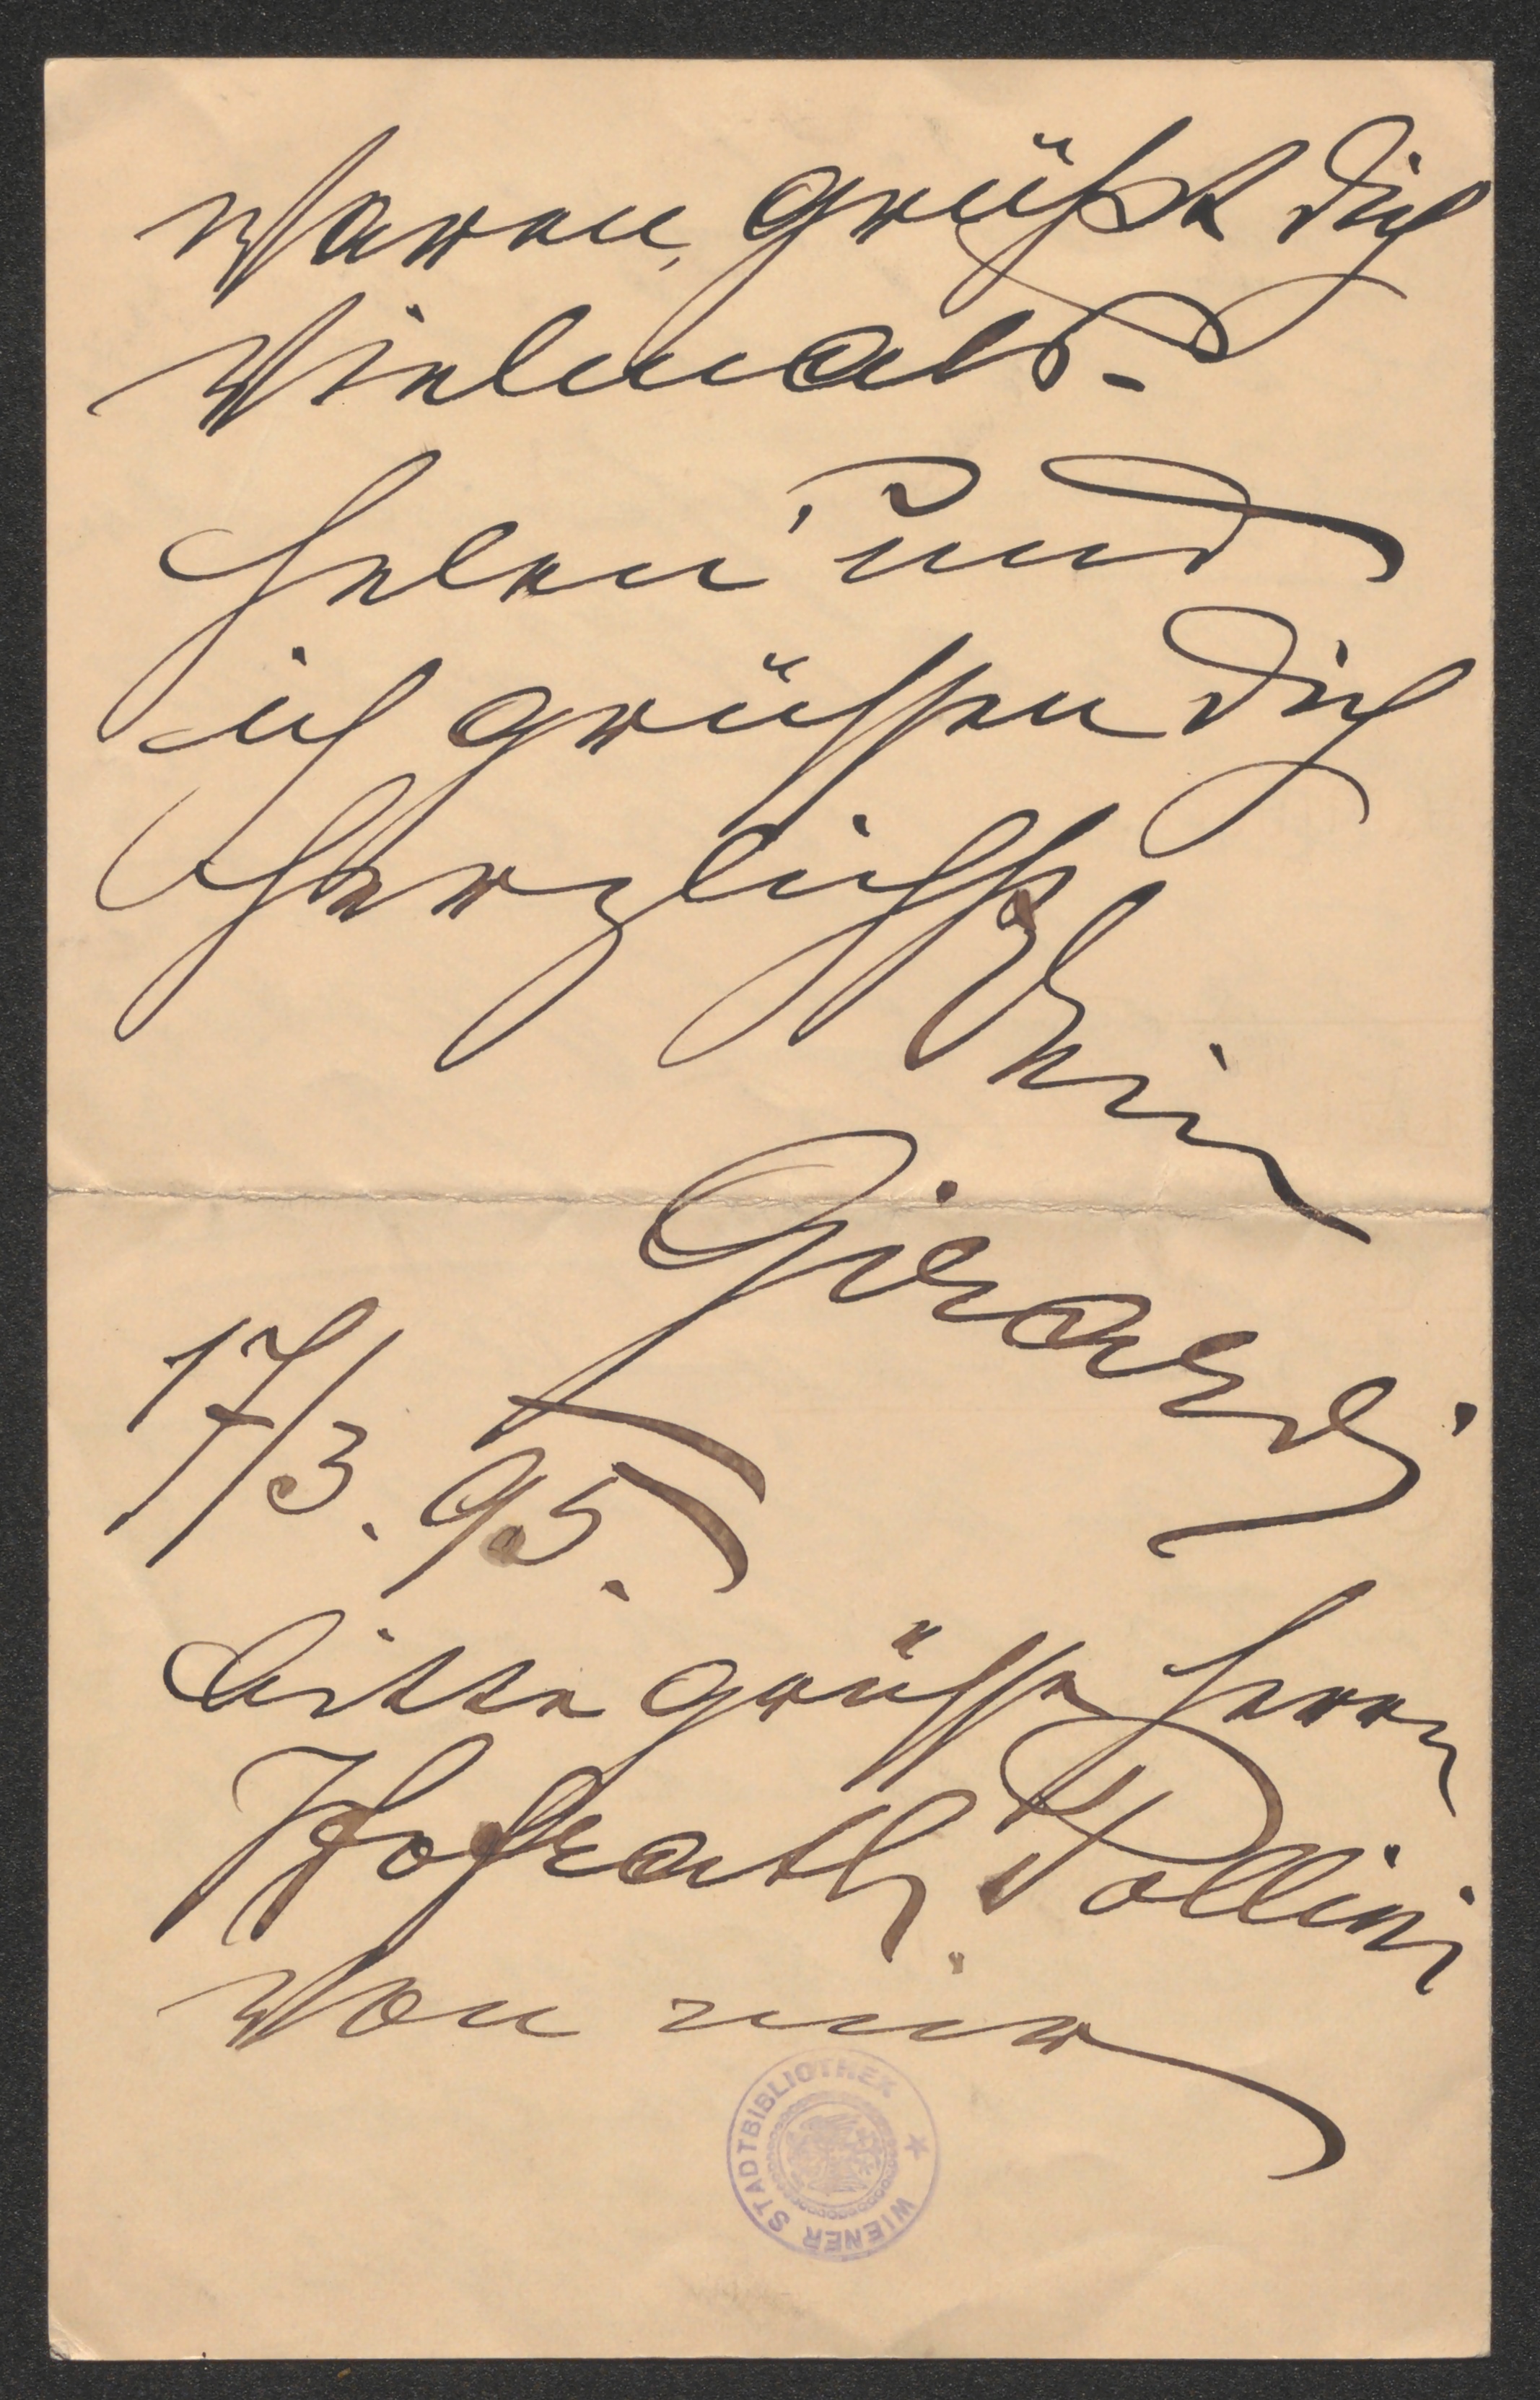 waren, grüßt dich
Vielmals.
Helen und
ich grüssen dich
Herzlichst Dein
Girardi
17/3. 95.
bitte grüsse Herrn
Hofrath Pollini
von mir
WIENER STADTBIBLIOTHEK